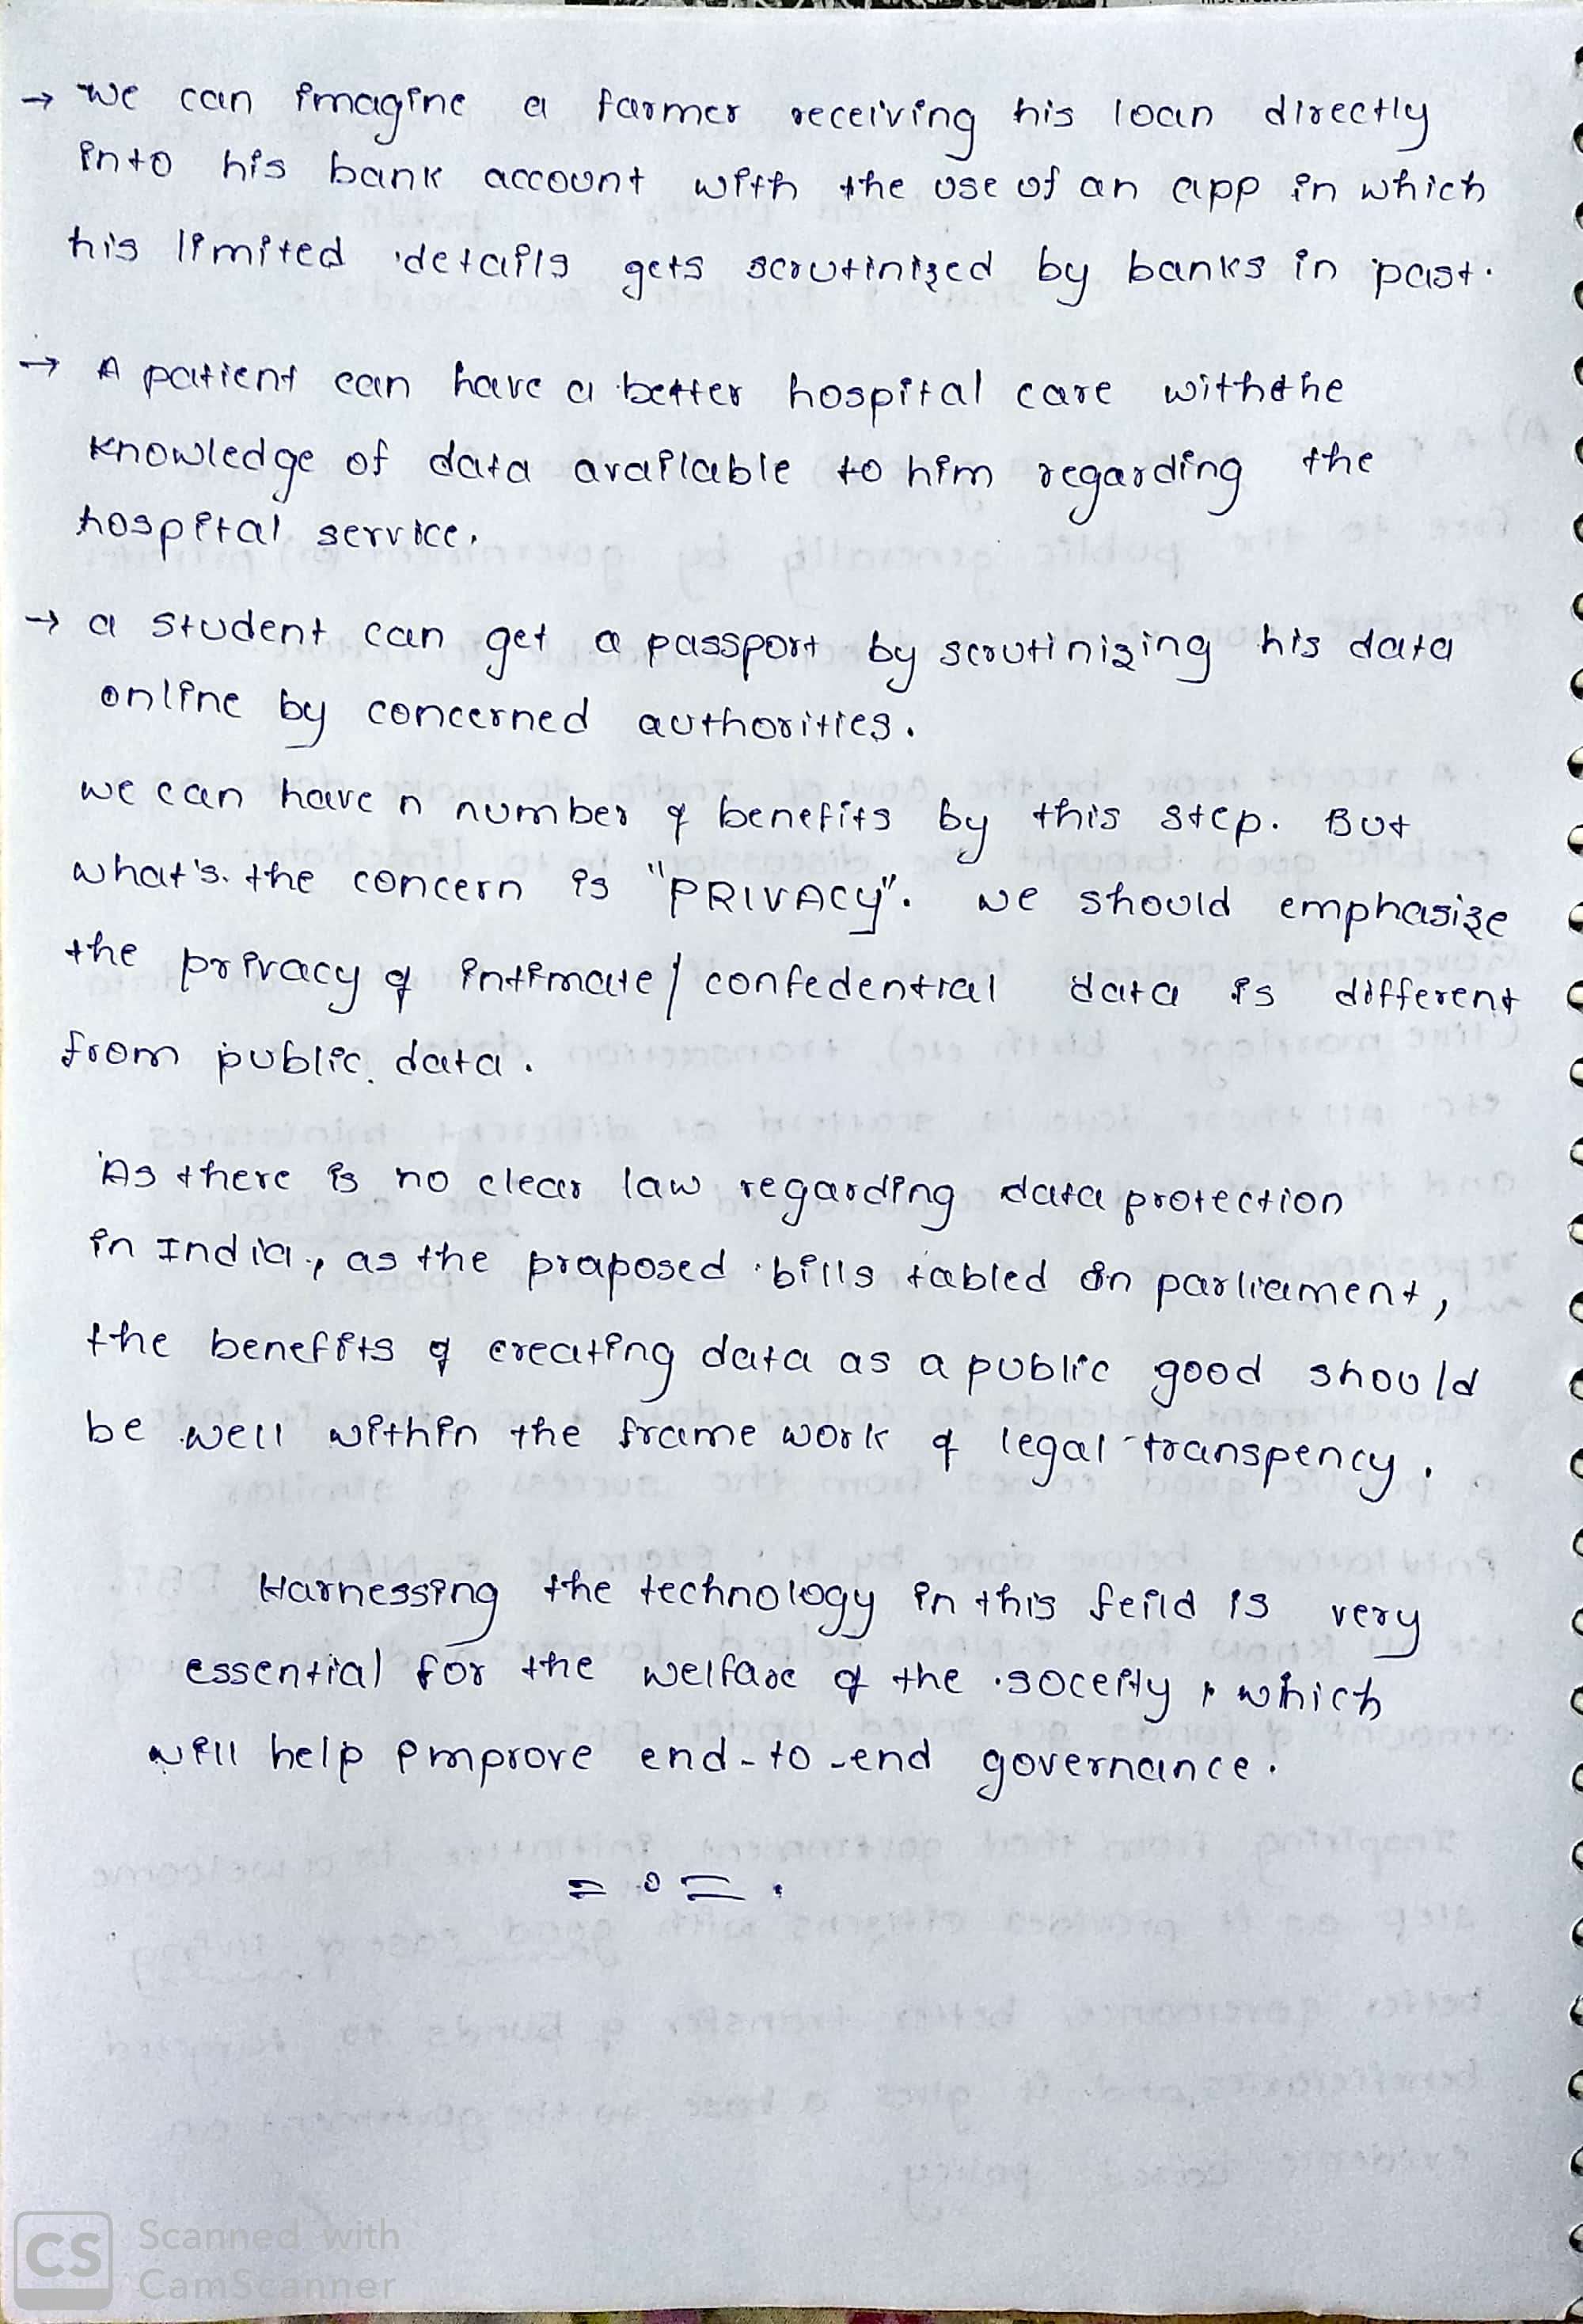 → We can imagine a farmer receiving his loan directly
into his bank account with the use of an app in which
his limited details gets scrutinized by banks in past.
→ A patient can have a better hospital care with the
knowledge of data available to him regarding the
hospital service.
→ a student can get a passport by scrutinizing his data
online by concerned authorities.
we can have n number of benefits by this step. But
what's the concern is "PRIVACY". we should emphasize
the privacy of intimate/confedential data is different
from public data.
As there is no clear law regarding data protection
in India, as the praposed bills tabled in parliament,
the benefits of creating data as a public good should
be well within the frame work of legal transpency.
Harnessing the technology in this feild is very
essential for the welfare of the soceity, which
will help improve end-to-end governance.
= 0 = .
CS Scanned with
CamScanner